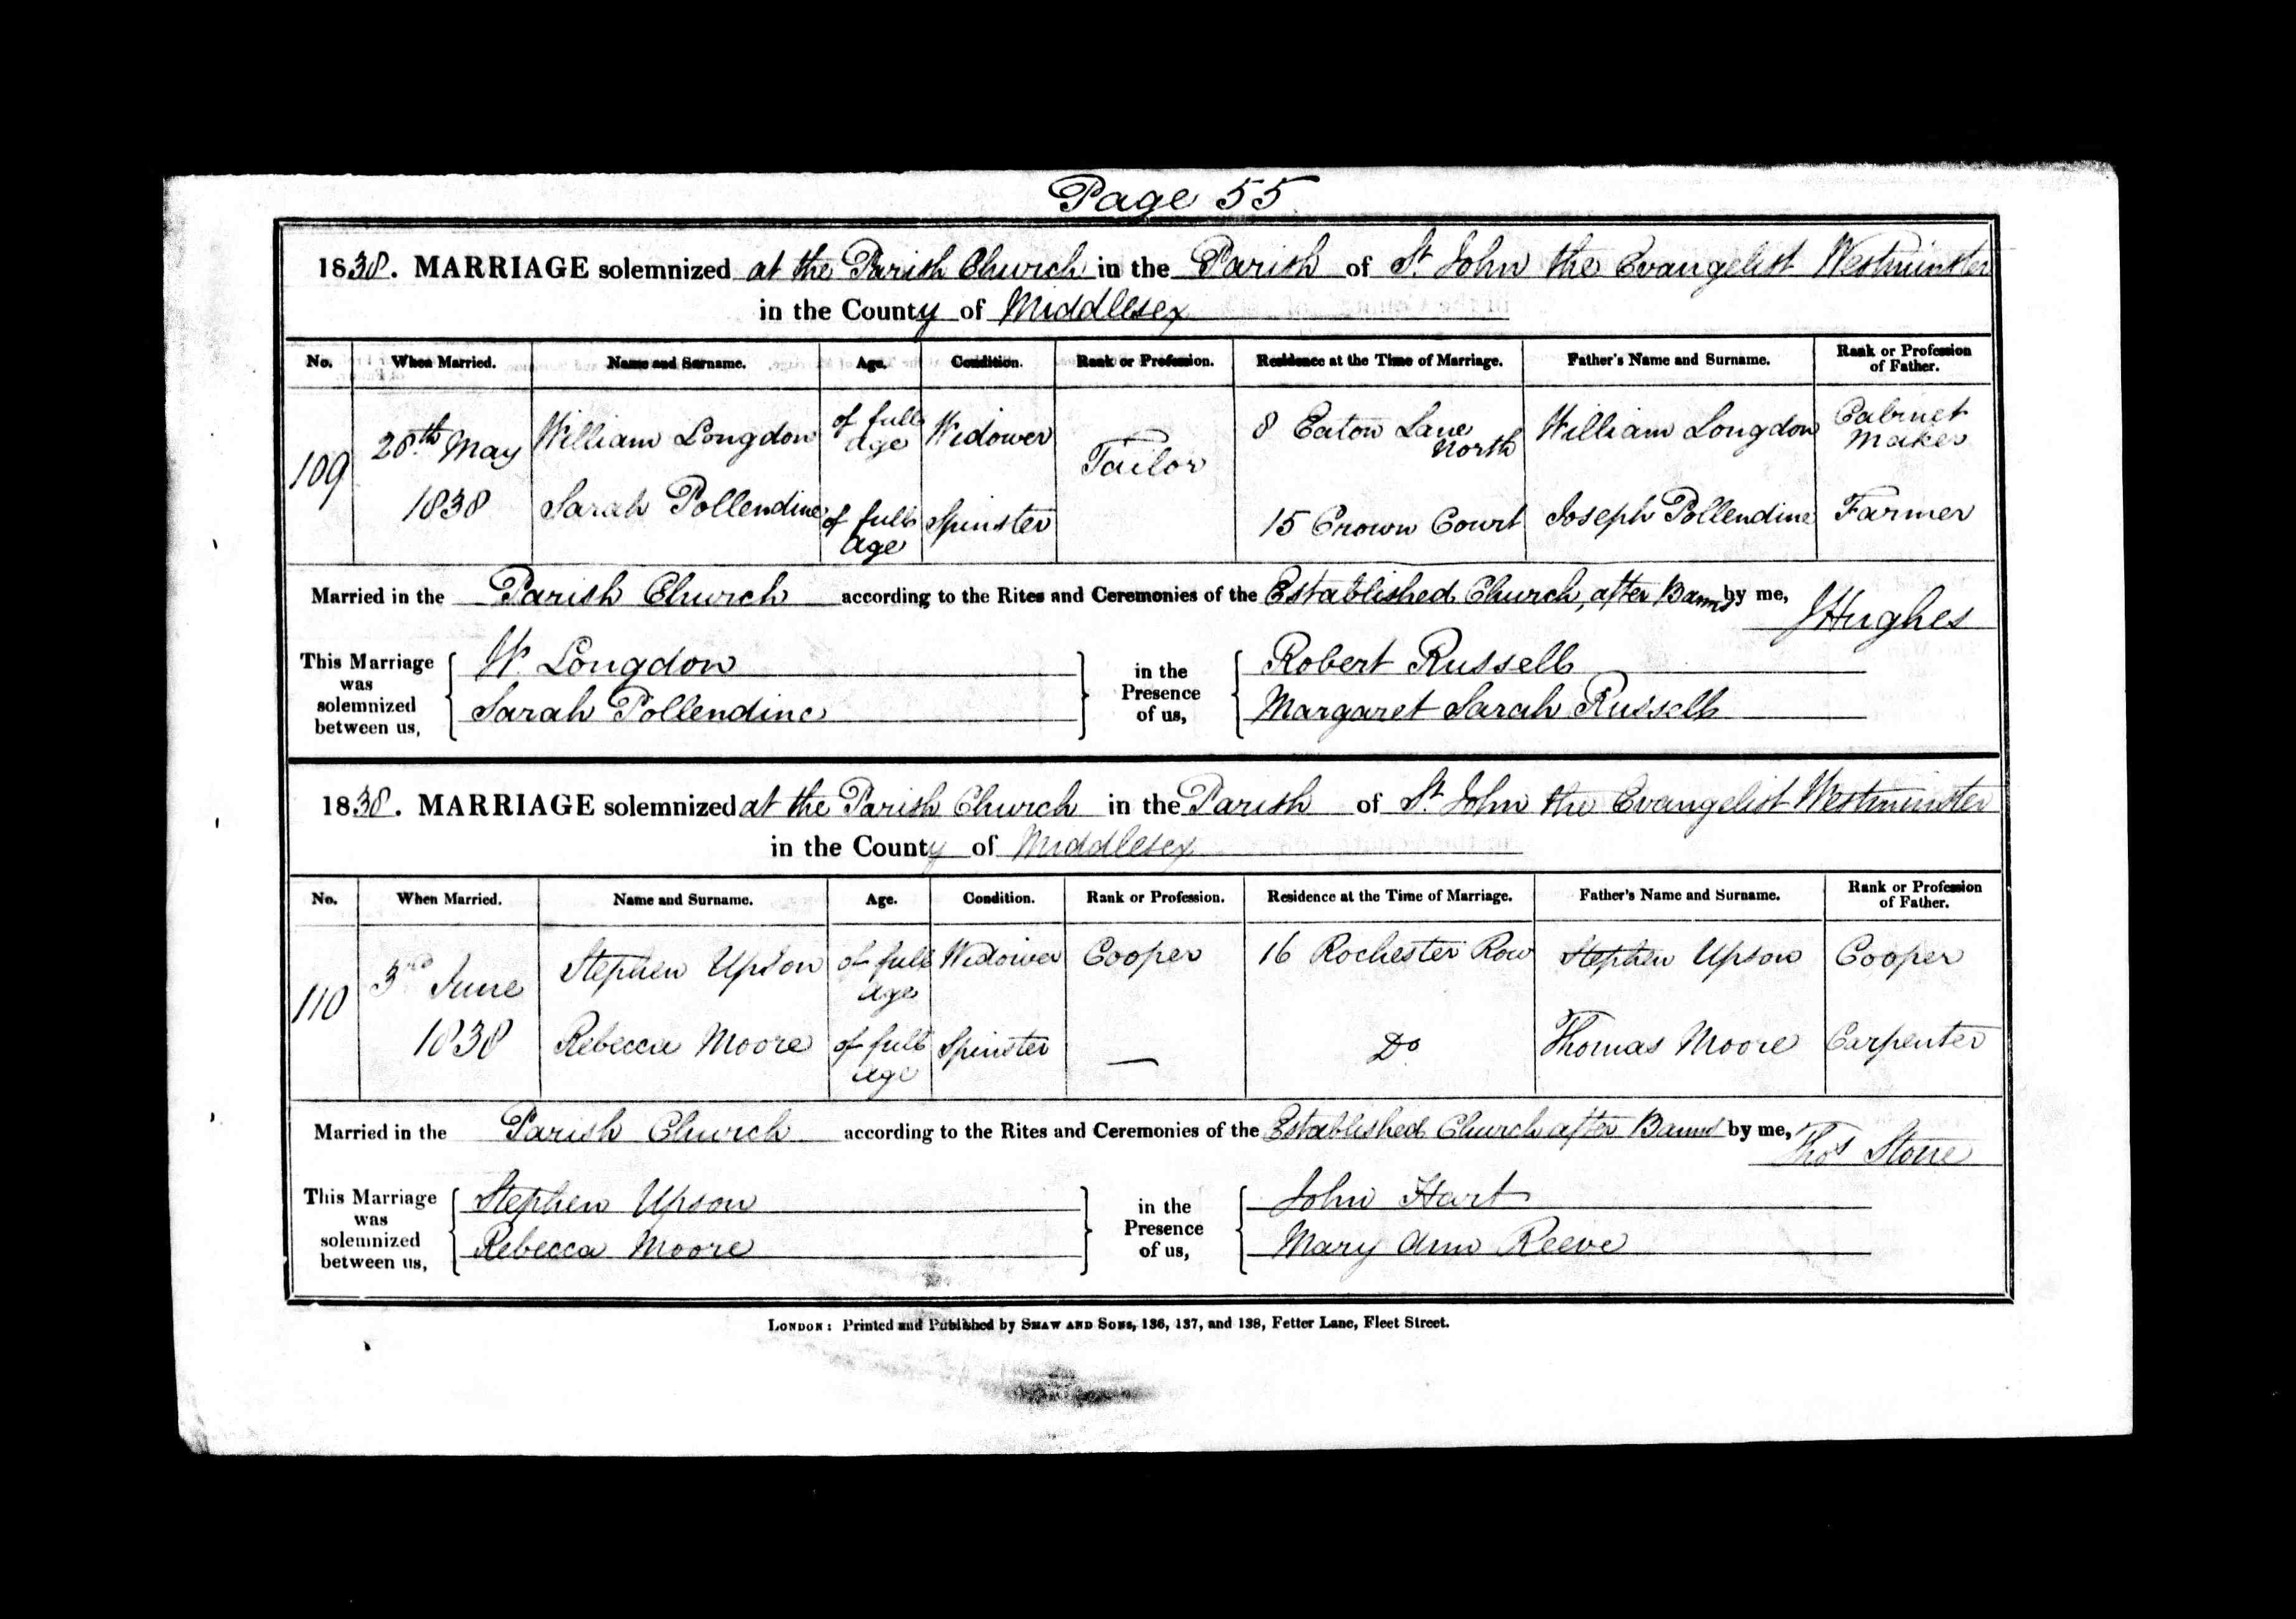 Page 55
1838. MARRIAGE solemnized at the Parish Church in the Parish of St John the Evangelist Westminster
in the County of Middlesex
No. When Married. Name and Surname. Age. Condition. Rank or Profession. Residence at the Time of Marriage. Father's Name and Surname. Rank or Profession of Father.
109 28th May 1838 William Longdon of full age Widower Tailor 8 Eaton Lane North William Longdon Cabinet Maker
Sarah Pollendine of full age Spinster 15 Crown Court Joseph Pollendine Farmer
Married in the Parish Church according to the Rites and Ceremonies of the Established Church, after Banns by me, J Hughes
This Marriage was solemnized between us, W. Longdon in the Presence of us, Robert Russell
Sarah Pollendine Margaret Sarah Russell
1838. MARRIAGE solemnized at the Parish Church in the Parish of St John the Evangelist Westminster
in the County of Middlesex
No. When Married. Name and Surname. Age. Condition. Rank or Profession. Residence at the Time of Marriage. Father's Name and Surname. Rank or Profession of Father.
110 3rd June 1838 Stephen Upson of full age Widower Cooper 16 Rochester Row Stephen Upson Cooper
Rebecca Moore of full age Spinster — Do Thomas Moore Carpenter
Married in the Parish Church according to the Rites and Ceremonies of the Established Church after Banns by me, Thos Stone
This Marriage was solemnized between us, Stephen Upson in the Presence of us, John Hart
Rebecca Moore Mary Ann Reeve
LONDON: Printed and Published by SHAW AND SONS, 136, 137, and 138, Fetter Lane, Fleet Street.